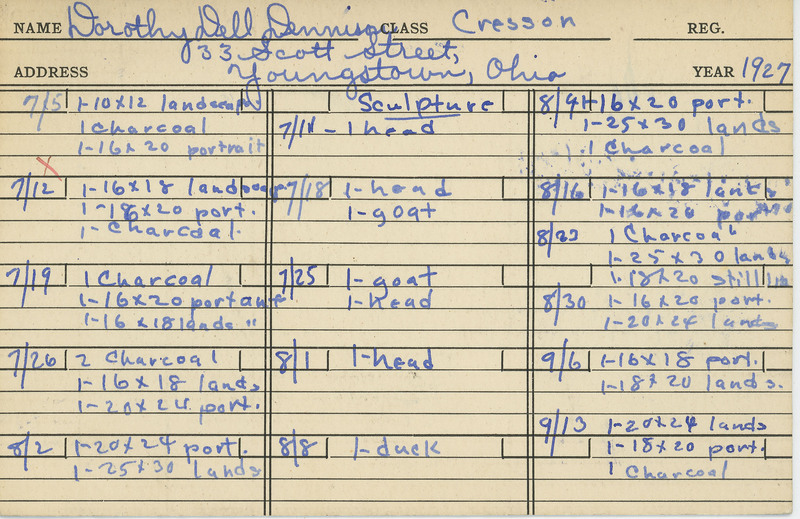 NAME Dorothy Dell Dennison CLASS Cresson REG.
33 Scott Street,
ADDRESS Youngstown, Ohio YEAR 1927
7/5 1-10x12 landscape
1 Charcoal
1-16x20 portrait
x
7/12 1-16x18 landscape
1-18x20 port.
1-Charcoal.
7/19 1 Charcoal
1-16x20 portrait
1-16x18 lands "
7/26 2 Charcoal
1-16x18 lands
1-20x24 port.
8/2 1-20x24 port.
1-25x30 lands
Sculpture
7/11 - 1 head
7/18 1-head
1-goat
7/25 1-goat
1-head
8/1 1-head
8/8 1-duck
8/9 1-16x20 port.
1-25x30 lands
1 Charcoal
8/16 1-16x18 lands
1-16x20 port
8/23 1 Charcoal
1-25x30 lands
1-18x20 still life
8/30 1-16x20 port.
1-20x24 lands
9/6 1-16x18 port.
1-18x20 lands.
9/13 1-20x24 lands
1-18x20 port.
1 Charcoal